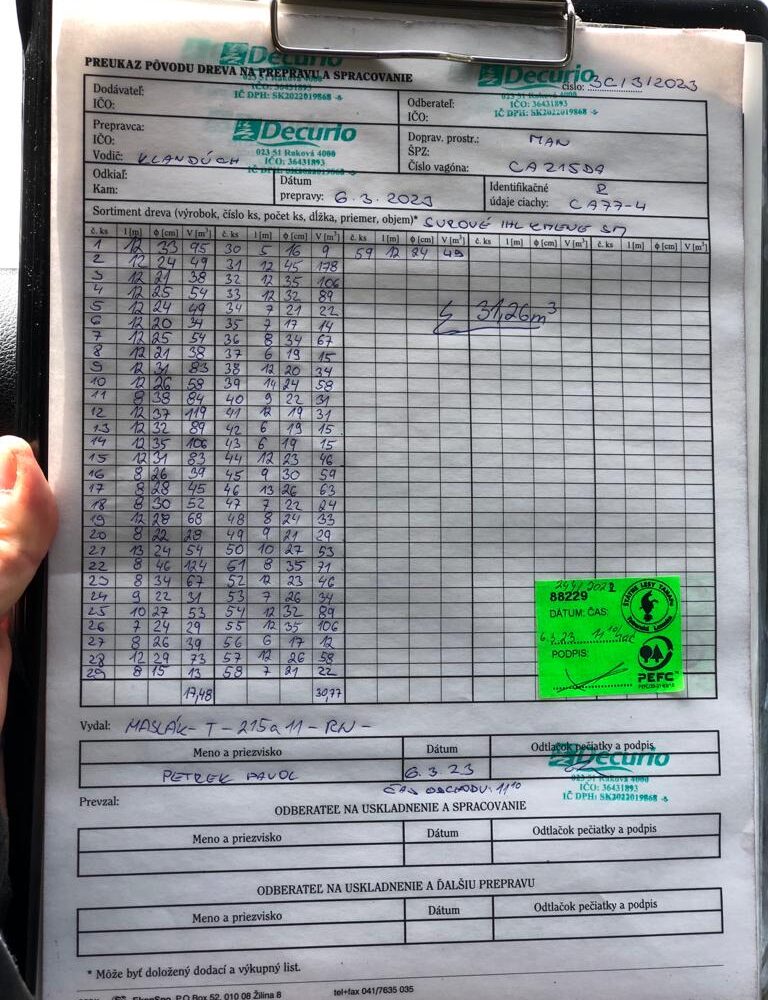 PREUKAZ PÔVODU DREVA NA PREPRAVU A SPRACOVANIE
Decurio
023 51 Raková 4000
IČO: 36431893
IČ DPH: SK2022019868
Decurio
023 51 Raková 4000
IČO: 36431893
IČ DPH: SK2022019868
číslo: 3C/3/2023
Dodávateľ:
IČO:
Odberateľ:
IČO:
Prepravca:
IČO:
Vodič: KLANDÚCH
Decurio
023 51 Raková 4000
IČO: 36431893
IČ DPH: SK2022019868
Doprav. prostr.: MAN
ŠPZ:
Číslo vagóna: CA215DA
Odkiaľ:
Kam:
Dátum
prepravy: 6.3.2023
Identifikačné
údaje ciachy: CA77-4
Sortiment dreva (výrobok, číslo ks, počet ks, dĺžka, priemer, objem)* SUROVÉ IHL KMENE SM
č. ks l [m] φ [cm] V [m³] č. ks l [m] φ [cm] V [m³] č. ks l [m] φ [cm] V [m³] č. ks l [m] φ [cm] V [m³] č. ks l [m] φ [cm] V [m³]
1 12 33 95 30 5 16 9 59 12 24 49
2 12 24 49 31 12 45 178
3 12 21 38 32 12 35 106
4 12 25 54 33 12 32 89
5 12 24 49 34 7 21 22
31,26m³
6 12 20 34 35 7 17 14
7 12 25 54 36 8 34 67
8 12 21 38 37 6 19 15
9 12 31 83 38 12 20 34
10 12 26 58 39 14 24 58
11 8 38 84 40 9 22 31
12 12 37 119 41 12 19 31
13 12 32 89 42 6 19 15
14 12 35 106 43 6 19 15
15 12 31 83 44 12 23 46
16 8 26 39 45 9 30 59
17 8 28 45 46 13 26 63
18 8 30 52 47 7 22 24
19 12 28 68 48 8 24 33
20 8 22 28 49 9 21 29
21 13 24 54 50 10 27 53
22 8 46 124 51 8 35 71
23 8 34 67 52 12 23 46
24 9 22 31 53 7 26 34
25 10 27 53 54 12 32 89
26 7 24 29 55 12 35 106
27 8 26 39 56 6 17 12
28 12 29 73 57 12 26 58
29 8 15 13 58 7 21 22
17,48 30,77
88229
DÁTUM: ČAS:
6.3.23 11:10
PODPIS:
ŠTÁTNE LESY TANAPU
PEFC
Vydal: MASLÁK - T - 215a11 - RN -
Meno a priezvisko Dátum Odtlačok pečiatky a podpis
PETREK PAVOL 6.3.23
Decurio
023 51 Raková 4000
IČO: 36431893
IČ DPH: SK2022019868
ČAS ODCHODU: 11¹⁰
Prevzal:
ODBERATEĽ NA USKLADNENIE A SPRACOVANIE
Meno a priezvisko Dátum Odtlačok pečiatky a podpis
ODBERATEĽ NA USKLADNENIE A ĎALŠIU PREPRAVU
Meno a priezvisko Dátum Odtlačok pečiatky a podpis
* Môže byť doložený dodací a výkupný list.
P.O.Box 52, 010 08 Žilina 8 tel+fax 041/7635 035